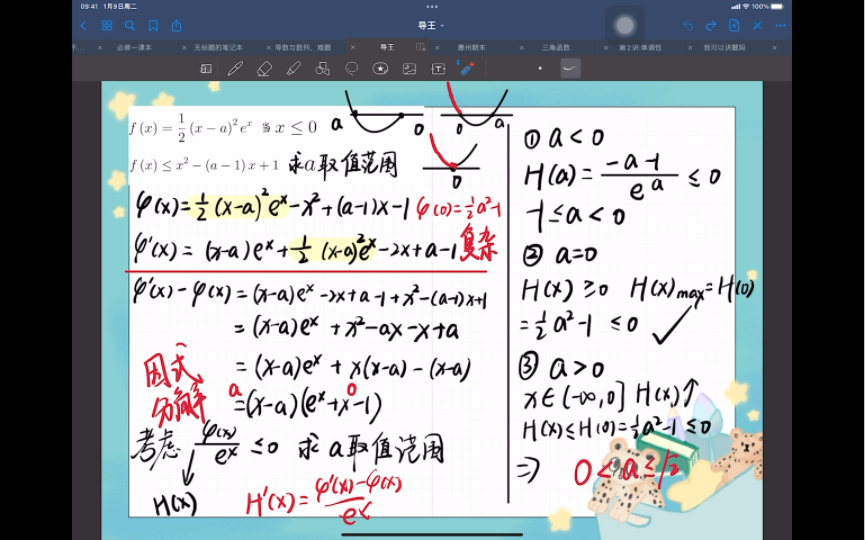 09:41 1月9日周二
100%
导王
必修一课本
无标题的笔记本
导数与数列、难题
导王
惠州期末
三角函数
第2讲:单调性
我可以讲题吗
f(x)=1/2(x-a)²eˣ 当 x≤0
f(x)≤x²-(a-1)x+1 求a取值范围
a 0
0 a
0
φ(x)=1/2(x-a)²eˣ-x²+(a-1)x-1 φ(0)=1/2a²-1
φ'(x)=(x-a)eˣ+1/2(x-a)²eˣ-2x+a-1 复杂
φ'(x)-φ(x)=(x-a)eˣ-2x+a-1+x²-(a-1)x+1
=(x-a)eˣ+x²-ax-x+a
=(x-a)eˣ+x(x-a)-(x-a)
因式分解
a 0
=(x-a)(eˣ+x-1)
考虑 φ(x)/eˣ ≤0 求a取值范围
H(x) H'(x)=φ'(x)-φ(x)/eˣ
① a<0
H(a)=-a-1/eᵃ ≤0
-1≤a<0
② a=0
H(x)≥0 H(x)max=H(0)
=1/2a²-1≤0 ✓
③ a>0
x∈(-∞,0] H(x)↑
H(x)≤H(0)=1/2a²-1≤0
⇒ 0<a≤√2